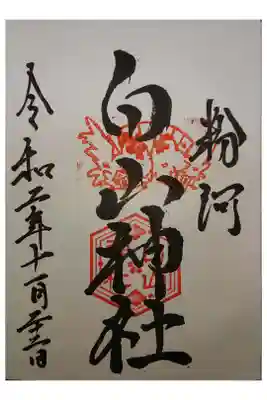 粉河
白山神社
令和二年十一月 日